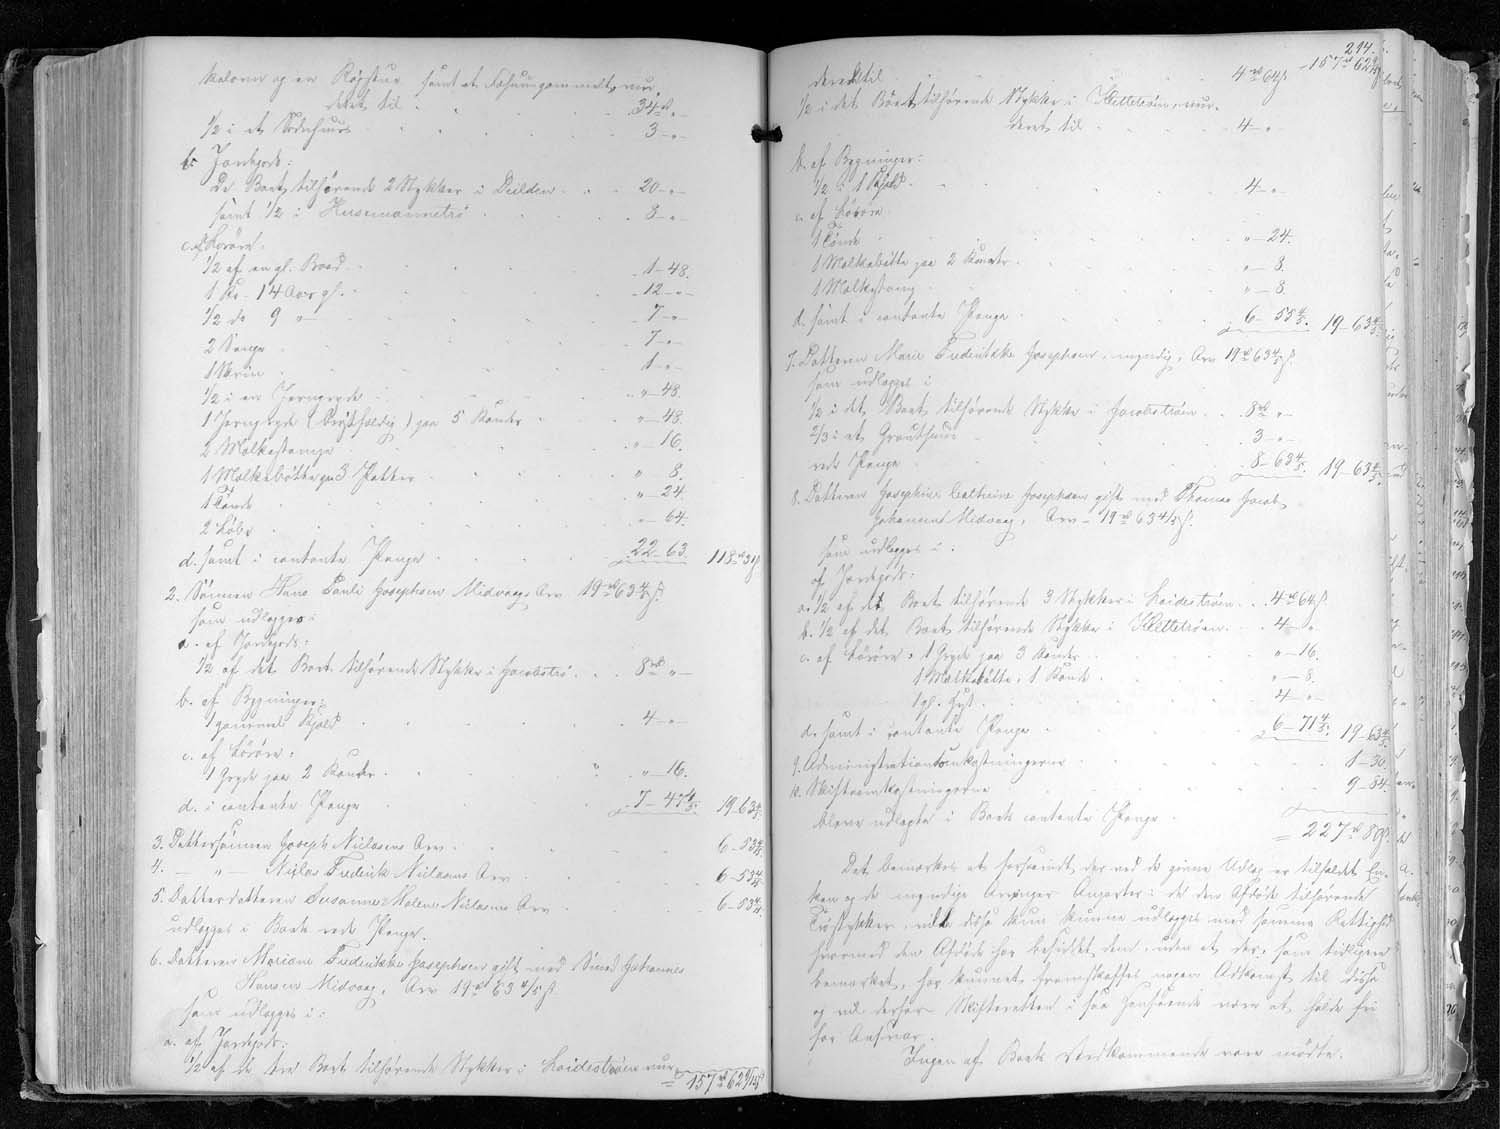 og en Røgstue samt et
deret til 34 rd "
1/2 i et 3 - " -
b. Jordgods:
De Boet tilhørende 2 Stykker i Deilden 20 - " -
samt 1/2 i Husemannetrø 8 - " -
c. af Løsøre:
1/2 af en gl. Baad 1 - 48.
1 Ko - 14 Aar gl. 12 - " -
1/2 do 9 " - 7 - " -
2 Senge 7 - " -
1 Skrin 1 - " -
1/2 i en Jerngryde " - 48.
1 Jerngryde (brøstfældig) paa 5 Kander " - 48.
2 Malkestampe " - 16.
1 Malkebøtte paa 3 Potter " 8.
1 Tønde " - 24
2 Løbe " - 64.
d. samt i contante Penge 22 - 63. 118 rd 31 ß
2. Sønnen Hans Pauli Josephsen Midvaag, Arv 19 rd 63 4/5 ß.
som udlægges i:
a. af Jordgods:
1/2 af det Boet tilhørende Stykke i Jacobstrø 8 rd "
b. af Bygninger:
1 gammel Hjald 4 - " -
c. af Løsøre:
1 Gryde paa 2 Kander " - 16.
d. i contante Penge 7 - 47 4/5. 19 - 63 4/5.
3. Dattersønnen Joseph Niclasens Arv 6 - 53
4. — " — Niclas Frederik Niclasens Arv 6 - 53
5. Datterdatteren Susanne Malene Niclasens Arv 6 - 53
udlægges i Boets rede Penge.
6. Datteren Mariane Frederikke Josephsen gift med Smed Johannes
Hansen Midvaag, Arv 19 rd 63 4/5 ß.
som udlægges i:
a. af Jordgods:
1/2 af de tre Boet tilhørende Stykker i Leidestrøen vur-
157 rd 62
294.
157 rd 62
deret til 4 rd 64 ß
1/2 i det Boet tilhørende Stykke i Klettetrøen, vur-
deret til 4 - "
b. af Bygninger:
1/2 i 1 Hjald 4 - "
c. af Løsøre
1 Tønde " - 24.
1 Malkebøtte paa 2 Kander " - 8.
1 Malkestamp " - 8.
d. samt i contante Penge 6 - 55 4/5. 19 - 63 4/5
7. Datteren Marie Frederikke Josephsen, myndig, Arv 19 rd 63 4/5 ß.
som udlægges i
1/2 i det Boet tilhørende Stykke i Jacobstrøen 8 rd "
2/3 i et Grouthuus 3 - " -
rede Penge 8 - 63 4/5. 19 - 63 4/5
8. Datteren Josephine Cathrine Josephsen gift med Thomas Jacob
Johannes Midvaag, Arv - 19 rd 63 4/5 ß.
som udlægges i:
af Jordgods:
a. 1/2 af det Boet tilhørende 3 Stykker i Leidestrøen 4 rd 64 ß.
b. 1/2 af det Boet tilhørende Stykke i Klettetrøen 4 - "
c. af Løsøre: 1 Gryde paa 3 Kander " - 16.
1 Malkebøtte, 1 Kande " - 8.
1 gl. Hest 4 - " -
d. samt i contante Penge 6 - 71 4/5. 19 - 63 4/5
9. Administrationsomkostningerne 1 - 30.
10. Skifteomkostningerne 9 - 84.
blive udlagte i Boets contante Penge
= 227 rd 80 ß.
Det bemærkes at forsaavidt der ved de givne Udlæg er tilfaldet En-
ken og de myndige Arvinger Anparter i de den Afdøde tilhørende
Trøstykker, vil disse kun kunne udlægges med samme Rettighed
hvormed den Afdøde har besiddet dem, uden at der, som tidligere
bemærket, har kunnet fremskaffes nogen Adkomst til disse
og vil derfor Skifteretten i saa Henseende være at holde fri
for Ansvar.
Ingen af Boets Vedkommende vare mødte.